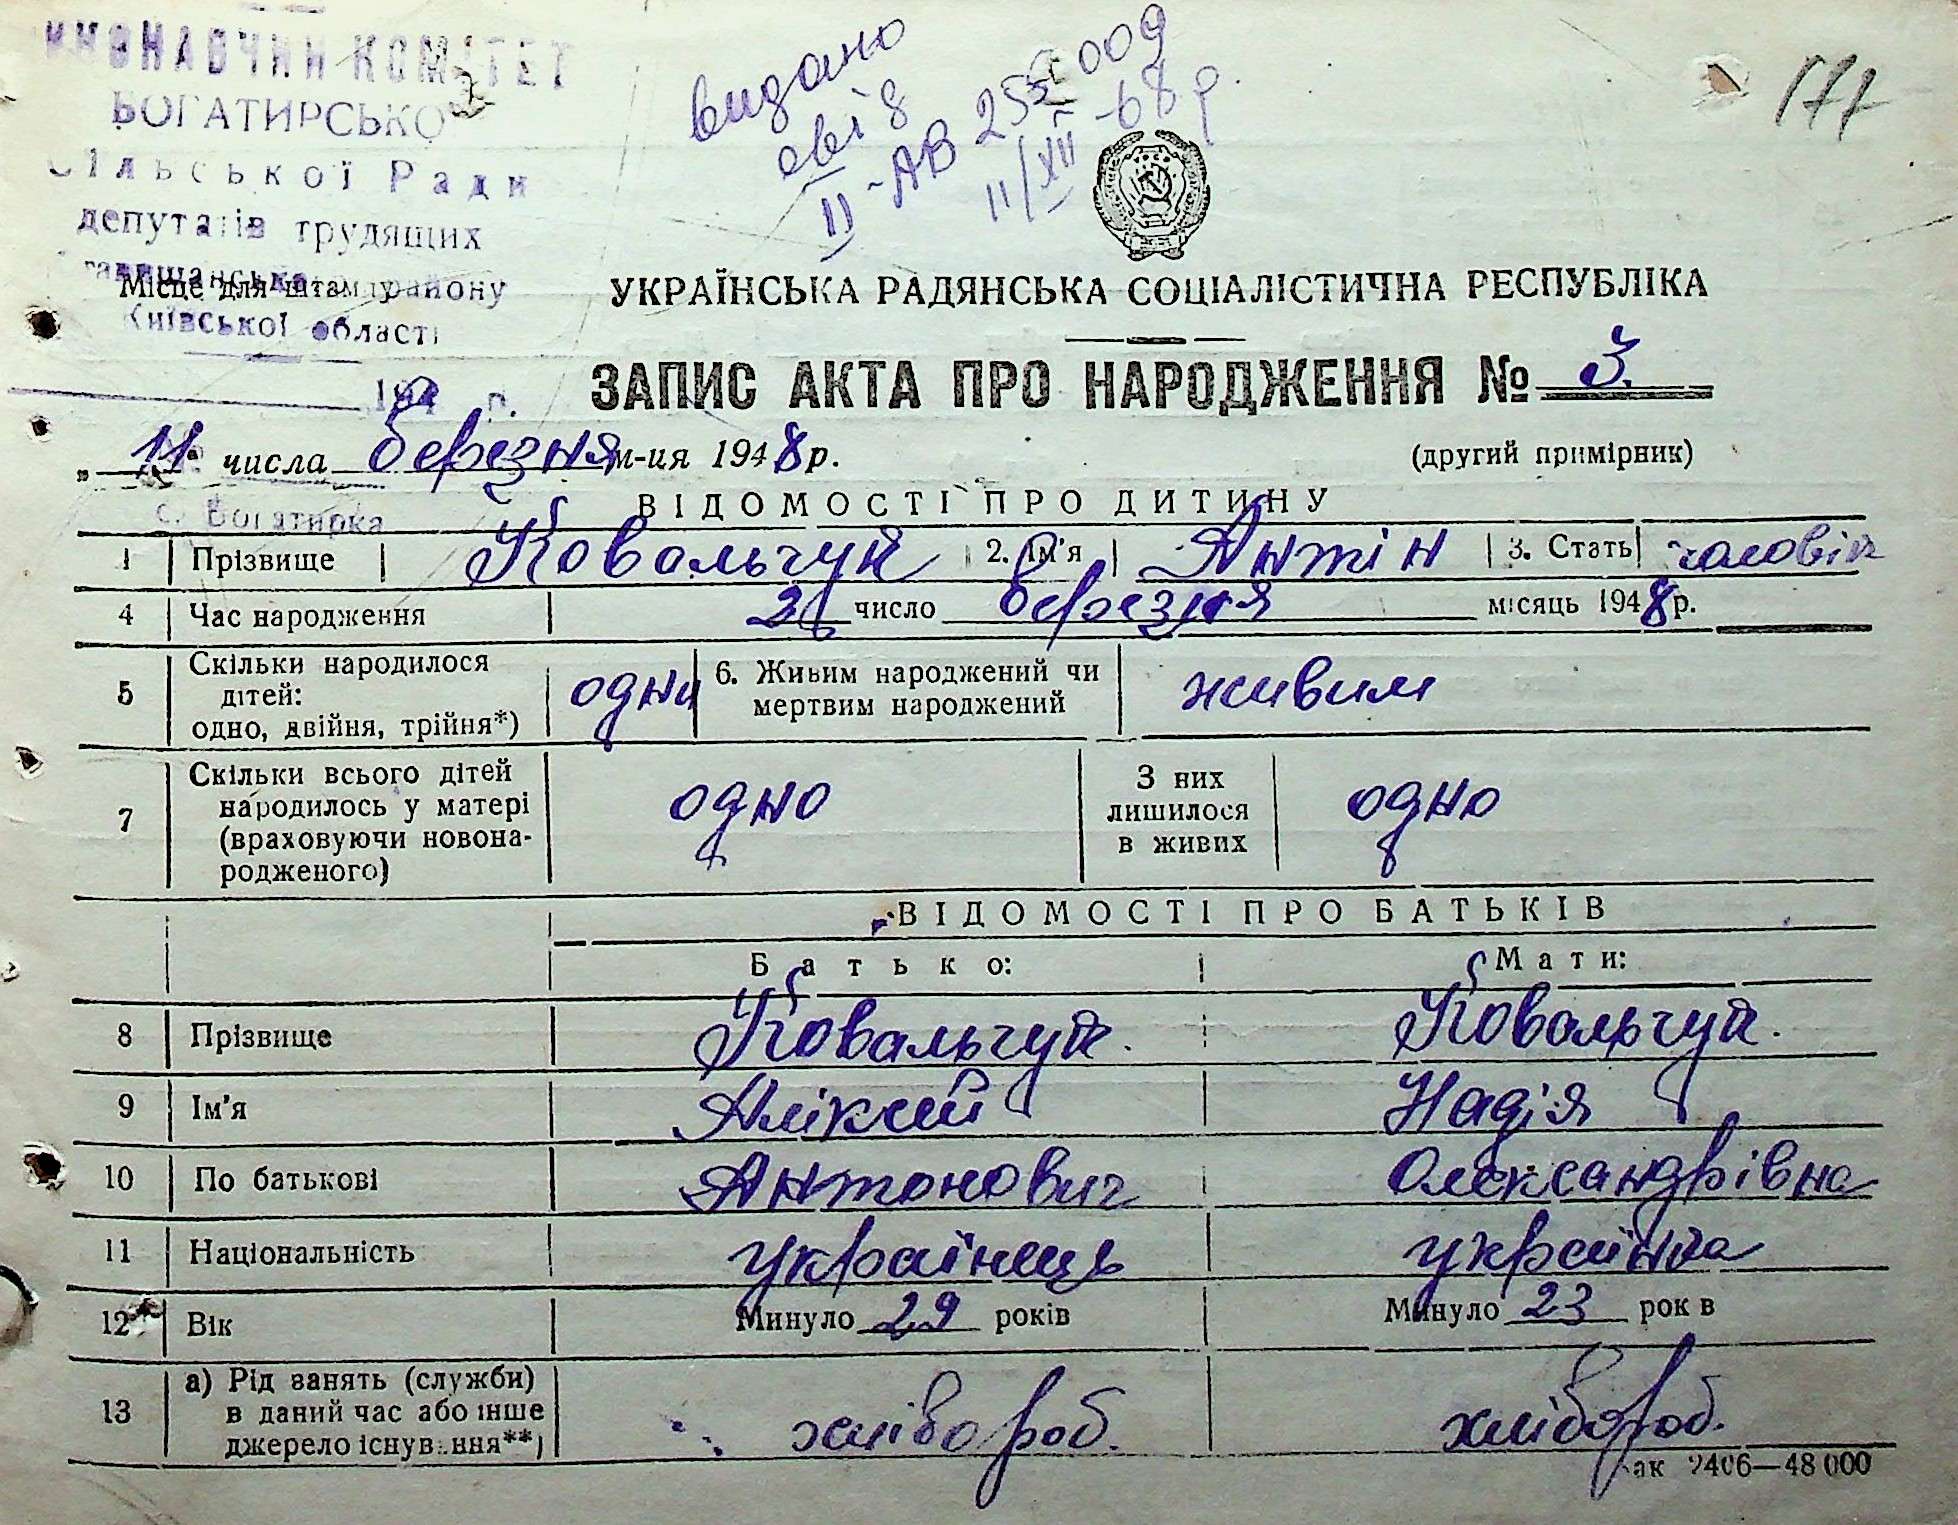 ВИКОНАВЧИЙ КОМІТЕТ
БОГАТИРСЬКОЇ
Сільської Ради
депутатів трудящих
району
Місце для штампу
Київської області
видано
свід
II-АВ 255009
11/XII-68 р.
177
УКРАЇНСЬКА РАДЯНСЬКА СОЦІАЛІСТИЧНА РЕСПУБЛІКА
ЗАПИС АКТА ПРО НАРОДЖЕННЯ № 3.
194 р.
„ 11 числа березня м-ця 1948 р.
(другий примірник)
с. Богатирка
ВІДОМОСТІ ПРО ДИТИНУ
1 Прізвище Ковальчук 2. Ім'я Антін 3. Стать чоловік
4 Час народження число березня місяць 1948 р.
5 Скільки народилося дітей: одно, двійня, трійня*) одни 6. Живим народжений чи мертвим народжений живим
7 Скільки всього дітей народилось у матері (враховуючи новонародженого) одно З них лишилося в живих одно
ВІДОМОСТІ ПРО БАТЬКІВ
Батько: Мати:
8 Прізвище Ковальчук. Ковальчук.
9 Ім'я Аліксій Надія
10 По батькові Антонович Олександрівна
11 Національність українець українка
12 Вік Минуло 29 років Минуло 23 рок в
13 а) Рід занять (служби) в даний час або інше джерело існування**) хлібороб. хлібороб.
ак 2406—48 000